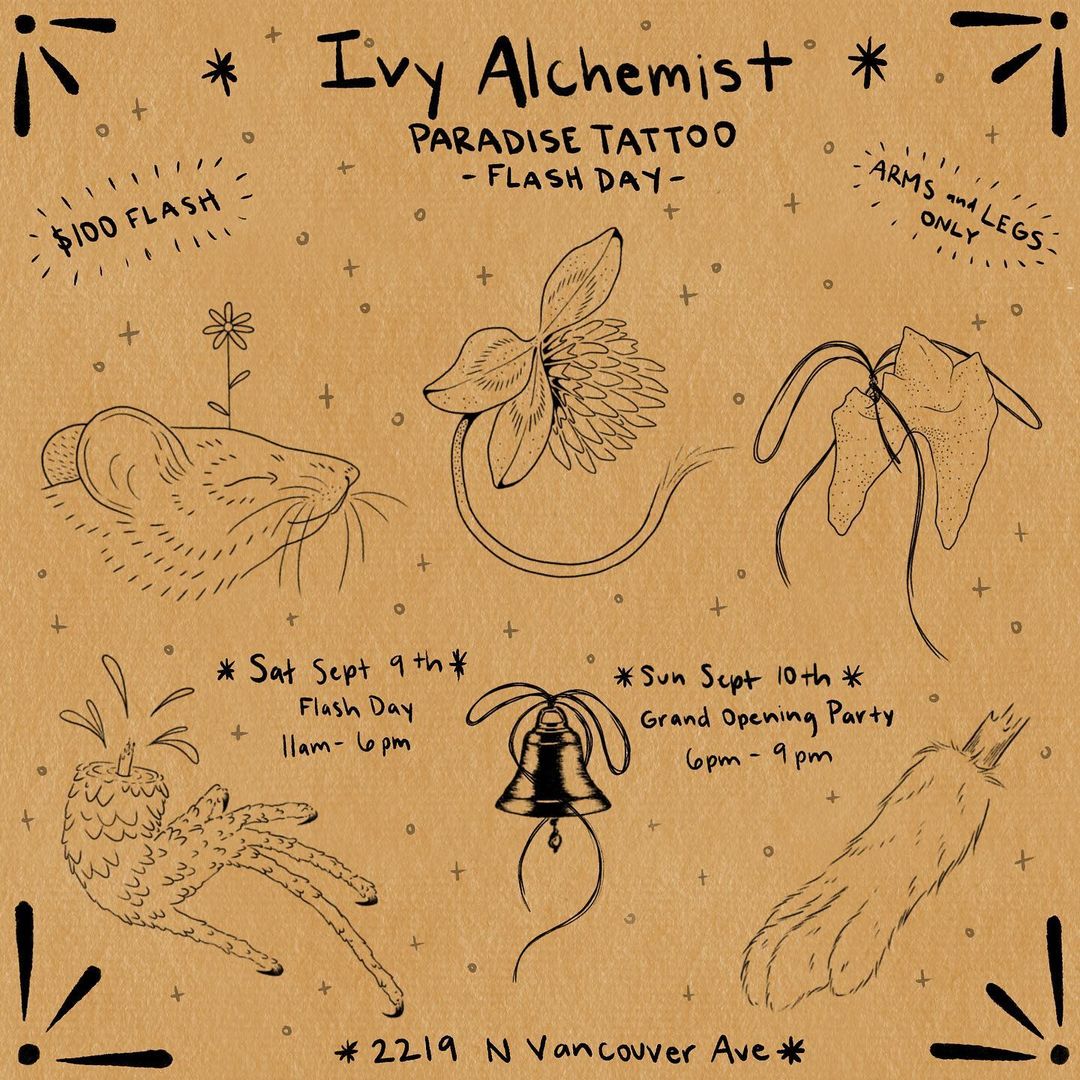 Ivy Alchemist
PARADISE TATTOO
-FLASH DAY-
$100 FLASH
ARMS and LEGS
ONLY
* Sat Sept 9th *
Flash Day
11am - 6pm
* Sun Sept 10th *
Grand Opening Party
6pm - 9pm
* 2219 N Vancouver Ave *